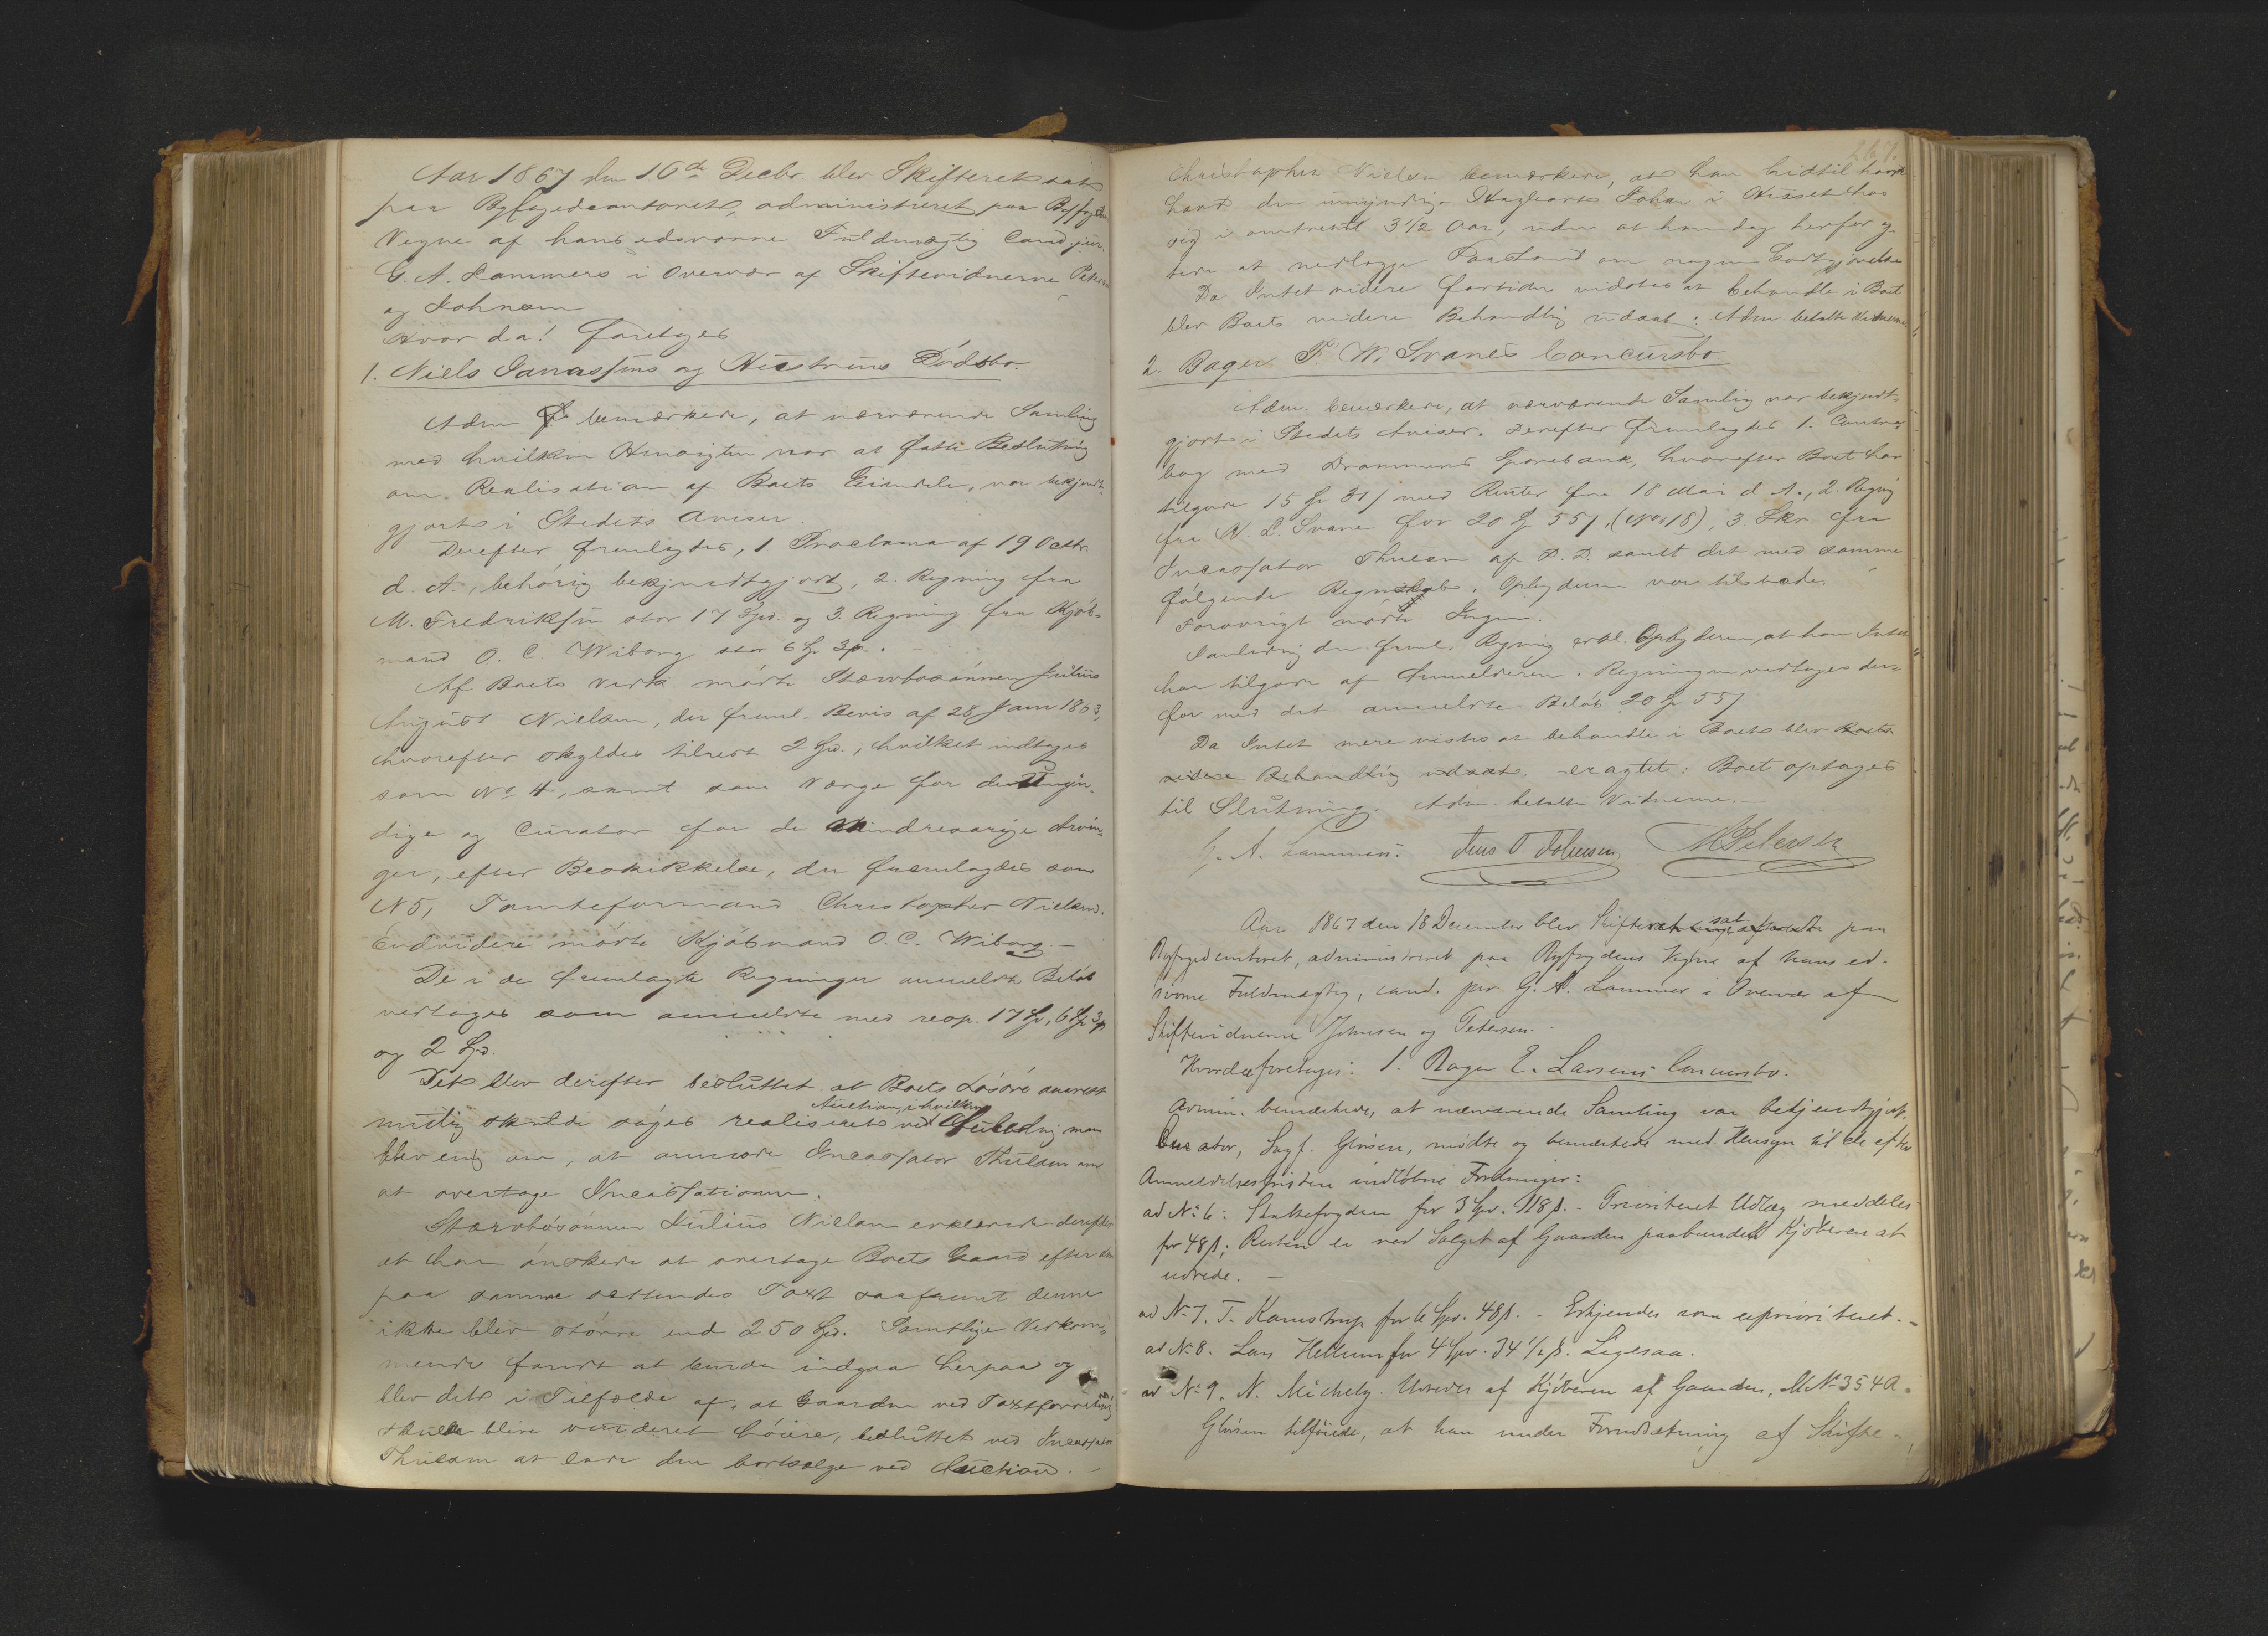 Aar 1867 den 16de Decbr blev Skifteret sat
paa Byfogedcontoret, administreret paa Byfogdens
Vegne af hans edsvorne Fuldmægtig Cand. jur.
G. A. Lammers i Overvær af Skiftevidnerne Petersen
og Johnsen
Hvor da! foretoges
1. Niels Jonassens og Hustrues Dødsbo.
Adm bemærkede, at nærværende Samling
med hvilken Hensigten var at fatte Beslutning
om Realisation af Boets Eiendele, var bekjendt-
gjort i Stedets Aviser.
Derefter fremlagdes, 1 Proclama af 19 Octbr
d. A., behørig bekjendtgjort, 2. Regning fra
M. Fredriksen stor 17 Spd. og 3. Regning fra Kjøb-
mand O. C. Wiborg stor 6 Sp 3 β.
Af Boets Vedk. mødte Stervbosønnen Julius
August Nielsen, der freml. Bevis af 28 Janr 1863,
hvorefter skyldes tilrest 2 Spd., hvilket indtages
som No 4, samt som Værge for de Umyn-
dige og Curator for de Mindreaarige Arvin-
ger, efter Beskikkelse, der fremlagdes som
N 5, Tomteformand Christopher Nielsen.
Endvidere mødte Kjøbmand O. C. Wiborg.-
De i de fremlagte Regninger anmeldte Beløb
vedtoges som anmeldte med resp. 17 Sp, 6 Sp 3 β
og 2 Spd.
Det blev derefter besluttet at Boets Løsøre snarest
mulig skulde søges realiseret ved Auction, i hvilken Anledning man
blev enig om, at anmode Incassator Thulsen om
at overtage Incassationen.
Stervbosønnen Julius Nielsen erklærede derefter
at han ønskede at overtage Boets Gaard efter den
paa samme settendes Taxt saafremt denne
ikke blev større end 250 Spd. Samtlige Vedkom-
mende fandt at kunde indgaa herpaa og
blev det i Tilfælde af, at Gaarden ved Taxtforretning
skulde blive vurderet høiere, besluttet ved Incassator
Thulsen at lade den bortsælge ved Auction.-
Christopher Nielsen bemærkede, at han hidtil havde
havt den umyndige Johan i Huset hos
sig i omtrent 3 1/2 Aar, uden at han dog herfor ag-
tede at nedlægge Paastand om nogen Godtgjørelse
Da Intet videre fortiden vidstes at behandle i Boet
blev Boets videre Behandling udsat. Adm betalte Vidnerne
2. Bager F. W. Svanes Concursbo
Adm. bemærkede, at nærværende Samling var bekjendt-
gjort i Stedets Aviser. Derefter fremlagdes 1. Contra-
bog med Drammens Sparebank, hvorefter Boet har
tilgode 15 Sp 31 β med Renter fra 18 Mai d. A., 2. Regng
fra N. L. Svane for 20 Sp 55 β, (No 18), 3. Skr. fra
Incassator Thulsen af D. D. samt det med samme
følgende Regnskab. Opbyderen var tilstede.
Forøvrigt mødte Ingen.
I Anledning den freml. Regning erkl. Opbyderen, at han Intet
har tilgode af Anmelderen. Regningen vedtoges der-
for med det anmeldte Beløb 20 Sp 55 β
Da Intet mere vistes at behandle i Boet blev Boets
videre Behandling udsat. eragtet: Boet optages
til Slutning. Adm. betalte Vidnerne.-
G. A. Lammers. Jens O Johnsen M Petersen
Aar 1867 den 18 December blev Skifteret sat paa
Byfogedcontoret, administreret paa Byfogdens Vegne af hans ed-
svorne Fuldmægtig, cand. jur G. A. Lammers i Overvær af
Skiftevidnerne Johnsen og Petersen.
Hvorda foretoges: 1. Bager E. Larsens Concursbo.
Admin. bemærkede, at nærværende Samling var bekjendtgjort.
Curator, Sagf. Gløersen, mødte og bemærkede med Hensyn til de efter
Anmeldelsesfristen indløbne Fordringer:
ad No 6: Skattefogden for 3 Spd. 118 β. - Prioriteret Udlæg meddeles
for 48 β; Resten er ved Salget af Gaarden paabundet Kjøberen at
udrede. -
ad No 7. T. Kamstrup for 6 Spd. 48 β. - Erkjendes som uprioriteret.-
ad No 8. Lars Hellum for 4 Spd. 34 1/2 β. Ligesaa.
ad No 9. N. Michely. Udredes af Kjøberen af Gaarden, M No 354 A.
Gløersen tilføiede, at han under Forudsætning af Skifte-